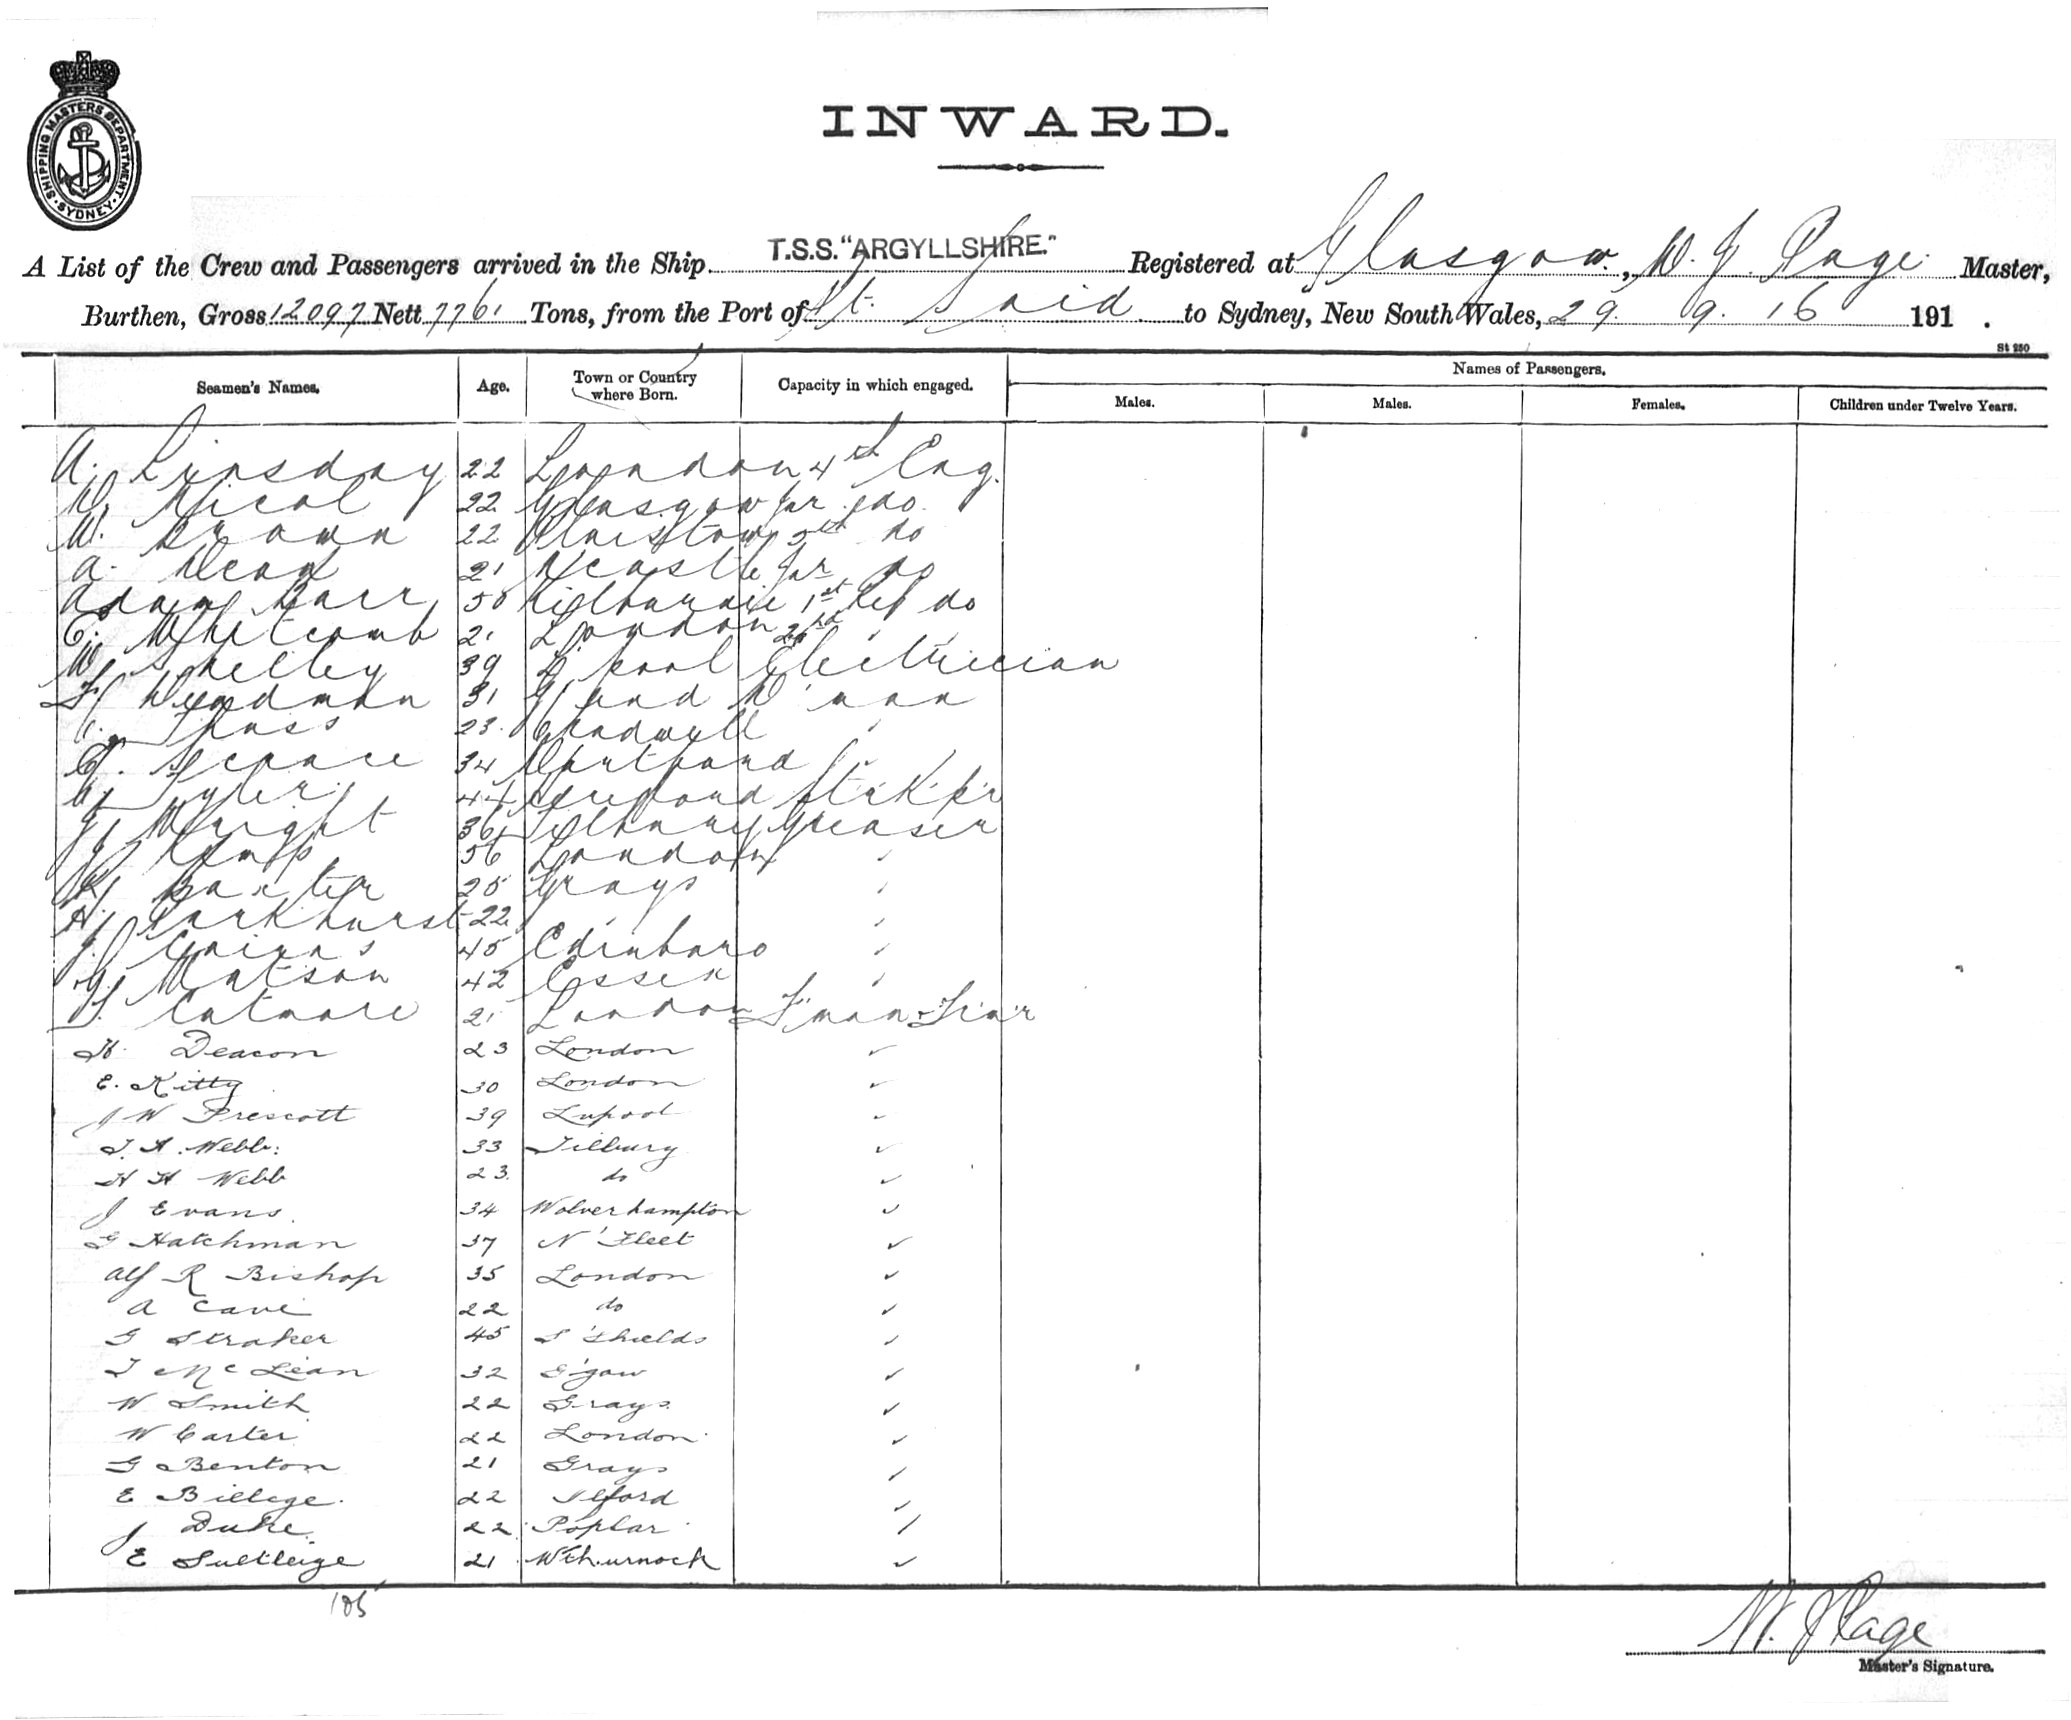 SHIPPING MASTERS DEPARTMENT. SYDNEY
INWARD.
A List of the Crew and Passengers arrived in the Ship T.S.S. "ARGYLLSHIRE." Registered at Glasgow, W. J. Page Master,
Burthen, Gross 12097 Nett 7761 Tons, from the Port of Pt. Said to Sydney, New South Wales, 29. 9. 16 191 .
St 250
Seamen's Names. Age. Town or Country where Born. Capacity in which engaged. Names of Passengers.
Males. Males. Females. Children under Twelve Years.
A. Linsday 22 London 4th Eng.
W. Nicol 22 Glasgow Jnr do.
W. Brown 22 Plaistow 5th do
A. Dead 21 Ncastle Jnr do
Adam Barr 50 Kilburnie 1st Ref do
E. Whitcomb 21 London 2nd " "
W. Shelley 39 L'pool Electrician
Woodman 31 D'man
23
34 "
44 St'k'p'r
Wright 36 Tilbury Greaser
J. Kemp 56 London "
H. Baxter 25 Grays "
H. Parkhurst 22 "
J. Cairns 45 Edinburo "
G. Watson 42 Essex "
T. Catmore 21 London F'man & Tr'm'r
H. Deacon 23 London ✓
E. Kitty 30 London ✓
J W Prescott 39 L'pool ✓
T. A. Webb. 33 Tilbury ✓
H H Webb 23. do ✓
J Evans. 34 Wolverhampton ✓
G Hatchman 37 N'Fleet ✓
Alf R Bishop 35 London ✓
A Cave 22 do ✓
G Straker 45 S'Shields ✓
T McLean 32 G'gow ✓
W Smith 22 Grays. ✓
W Carter 22 London ✓
G Benton 21 Grays ✓
E Billage. 22 Ilford ✓
J Duke. 22 Poplar ✓
E 21 W'Thurnock ✓
105
W. J Page
Master's Signature.